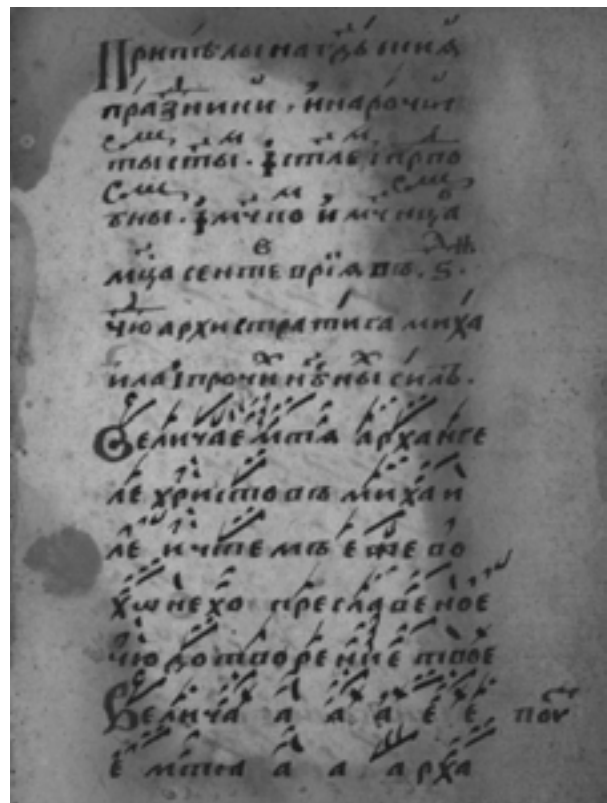 праз̾ники, и нарочи
ты сты. і стль і прпо
бны. і мчко и мчнца
мца сентевріѧ въ. ѕ.
чю архистратига миха
ила і прочи нбны силъ.
Величаемтѧ арханге
ле христовъ михаи
ле и чтемъ еже во
хѡнехо преславеное
чюдотворение твое
Велича а а а е е поу
е мтиа а а арха